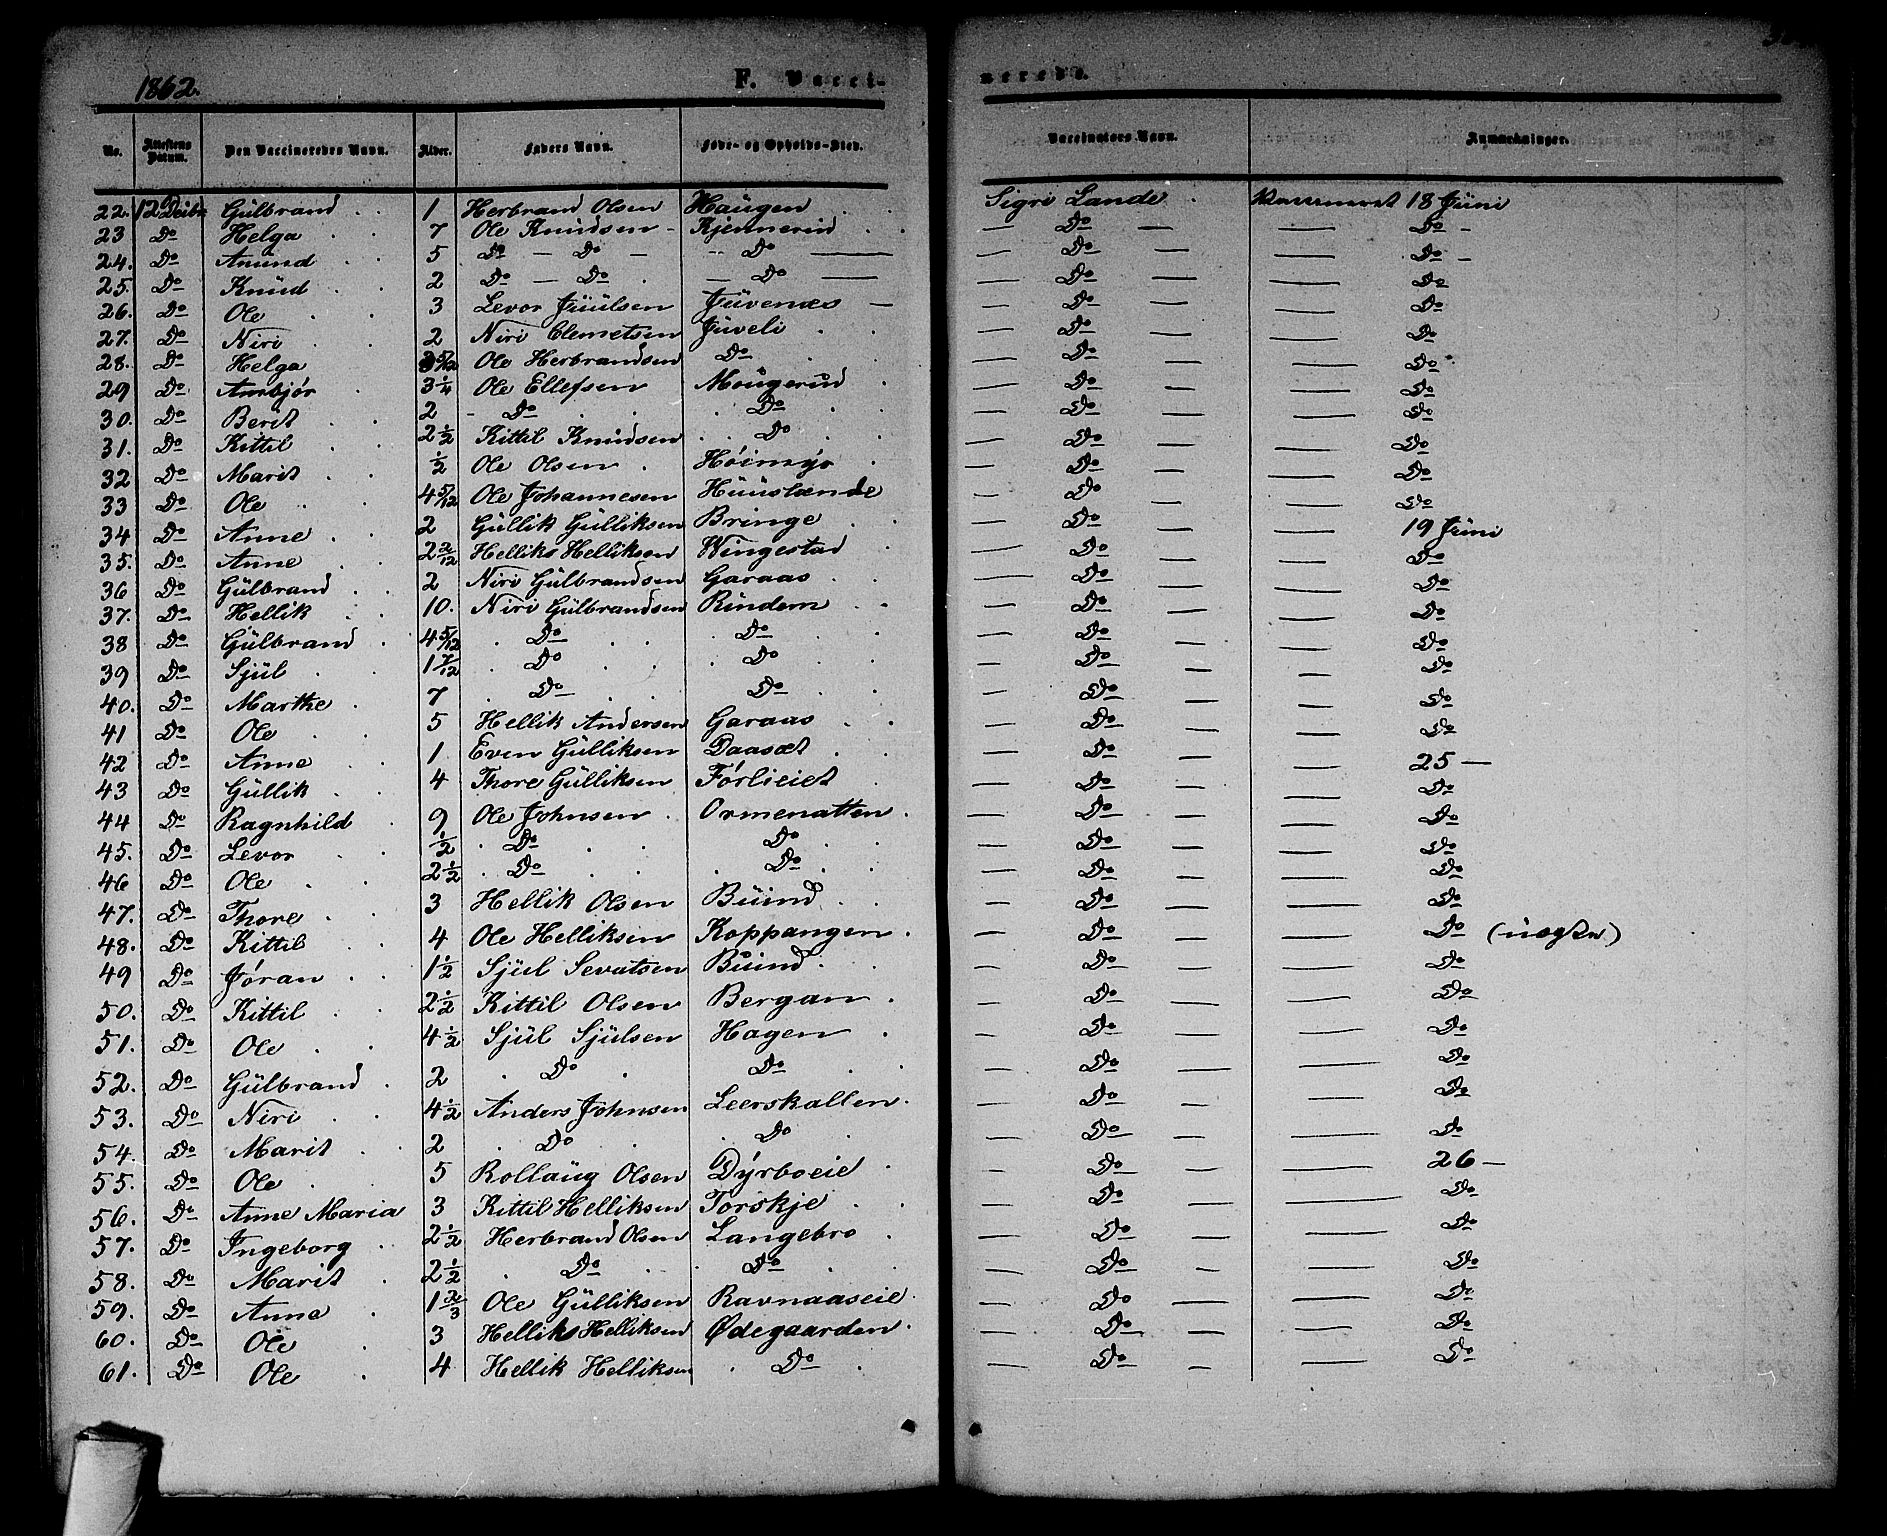 1862.
F. Vacci-
nerede.
No. Attestens Datum. Den Vaccineredes Navn. Alder. Faders Navn. Føde- og Opholds-Sted. Vaccinators Navn. Anmærkninger.
22. 12 Gülbrand 1 Herbrand Olsen Haügen Sigri Lande 18 Jüni
23 Do Helga 7 Ole Knüdsen - Kjennerüd — Do — — Do -
24. Do Amünd 5 Do — Do — Do — — Do — — Do -
25. Do Knüd 2 Do — Do — Do — — Do — — Do
26. Do Ole 3 Levor Jüülsen Jüvenæs — — Do — — Do
27. Do Niri 2 Niri Clemetsen Jüveli — Do — — Do
28. Do Helga 5/12 Ole Herbrandsen Do — Do — — Do
29 Do Ansbjór 3 1/4 Ole Ellefsen Moügerüd — Do — — Do
30. Do Berit 2 - Do Do — Do — — Do
31. Do Kittil 2 1/2 Kittil Knüdsen Do — Do — — Do
32 Do Marit 1/2 Ole Olsen Hóimyr — Do — — Do
33 Do Ole 4 5/12 Ole Johannesen Hüüslænde — Do — — Do
34 Do Anne 2 Güllik Gülliksen Bringe — Do — — 19 Jüni
35. Do Anne 2 2/12 Helliks Helliksen Wingestad — Do — — Do
36 Do Gülbrand 2 Niri Gülbrandsen Garaas — Do — — Do
37. Do Hellik 10. Niri Gülbrandsen Rindem — Do — — Do
38 Do Gülbrand 4 5/12 Do Do — Do — — Do
39 Do Sjül 1 7/12 Do Do — Do — — Do
40. Do Marthe 7 Do Do — Do — — Do
41 Do Ole 5 Hellik Andersen Garaas — Do — — Do
42 Do Anne 1 Even Gülliksen Daasæt — Do — — 25 —
43 Do Güllik 4 Thore Gülliksen Fórlieiet — Do — — Do
44 Do Ragnhild 9 Ole Johnsen Ormenatten — Do — — Do
45. Do Levor 1/2 Do Do — Do — — Do
46 Do Ole 2 1/2 Do Do — Do — — Do
47. Do Thore 3 Hellik Olsen Büind — Do — — Do
48. Do Kittil 4 Ole Helliksen Koppangen — Do — — Do (üægte)
49 Do Jóran 1 1/2 Sjül Sevatsen Büind — Do — — Do
50. Do Kittil 2 1/2 Kittil Olsen Bergan — Do — — Do
51. Do Ole 4 1/2 Sjül Sjülsen Hagen — Do — — Do
52. Do Gülbrand 2 Do Do — Do — — Do
53. Do Niri 4 1/2 Anders Johnsen Leerskallen — Do — — Do
54. Do Marit 2 Do Do — Do — — Do
55. Do Ole 5 Rollaüg Olsen Dyrboeie — Do — — 26 —
56. Do Anne Maria 3 Kittil Helliksen Torskje — Do — — Do
57. Do Ingeborg 2 1/2 Herbrand Olsen Langebro — Do — — Do
58. Do Marit 2 1/2 Do Do — Do — — Do
59. Do Anne 1 2/3 Ole Gülliksen Ravnaaseie — Do — — Do
60. Do Ole 3 Helliks Helliksen Ødegaarden — Do — — Do
61. Do Ole 4 Hellik Helliksen Do — Do — — Do